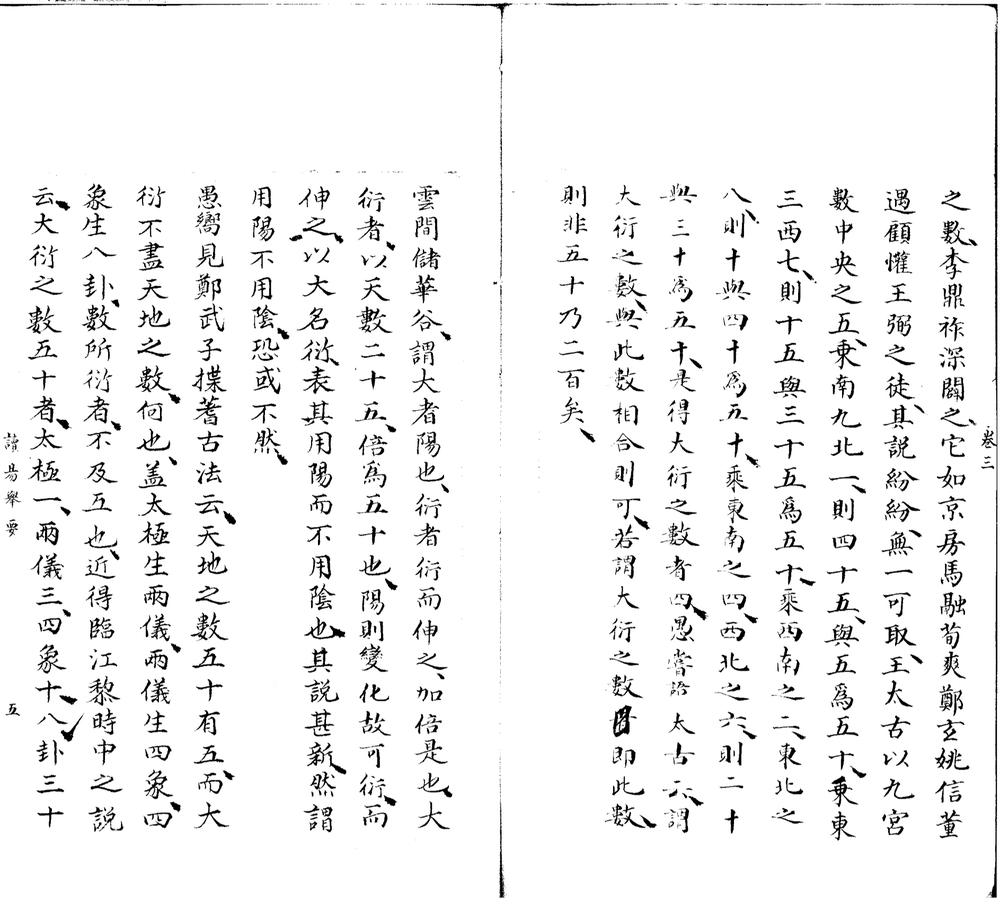 之數李鼎祚深闢之它如京房馬融荀爽鄭玄姚信董
遇顧懽王弼之徒其說紛紛無一可取王太古以九宮
數中央之五乗南九北一則四十五與五爲五十乗東
三西七則十五與三十五爲五十乘西南之二東北之
八則十與四十爲五十乘東南之四西北之六則二十
與三十爲五十是得大衍之數者四愚嘗語太古云謂
大衍之數與此數相合則可若謂大衍之數即此數
則非五十乃二百矣
卷三
雲間儲華谷謂大者陽也衍者衍而伸之加倍是也大
衍者以天數二十五倍爲五十也陽則變化故可衍而
伸之以大名衍表其用陽而不用陰也其說甚新然謂
用陽不用陰恐或不然
愚嚮見鄭武子揲蓍古法云天地之數五十有五而大
衍不盡天地之數何也盖太極生兩儀兩儀生四象四
象生八卦數所衍者不及五也近得臨江黎時中之說
云大衍之數五十者太極一兩儀三四象十八卦三十
讀易舉要
五